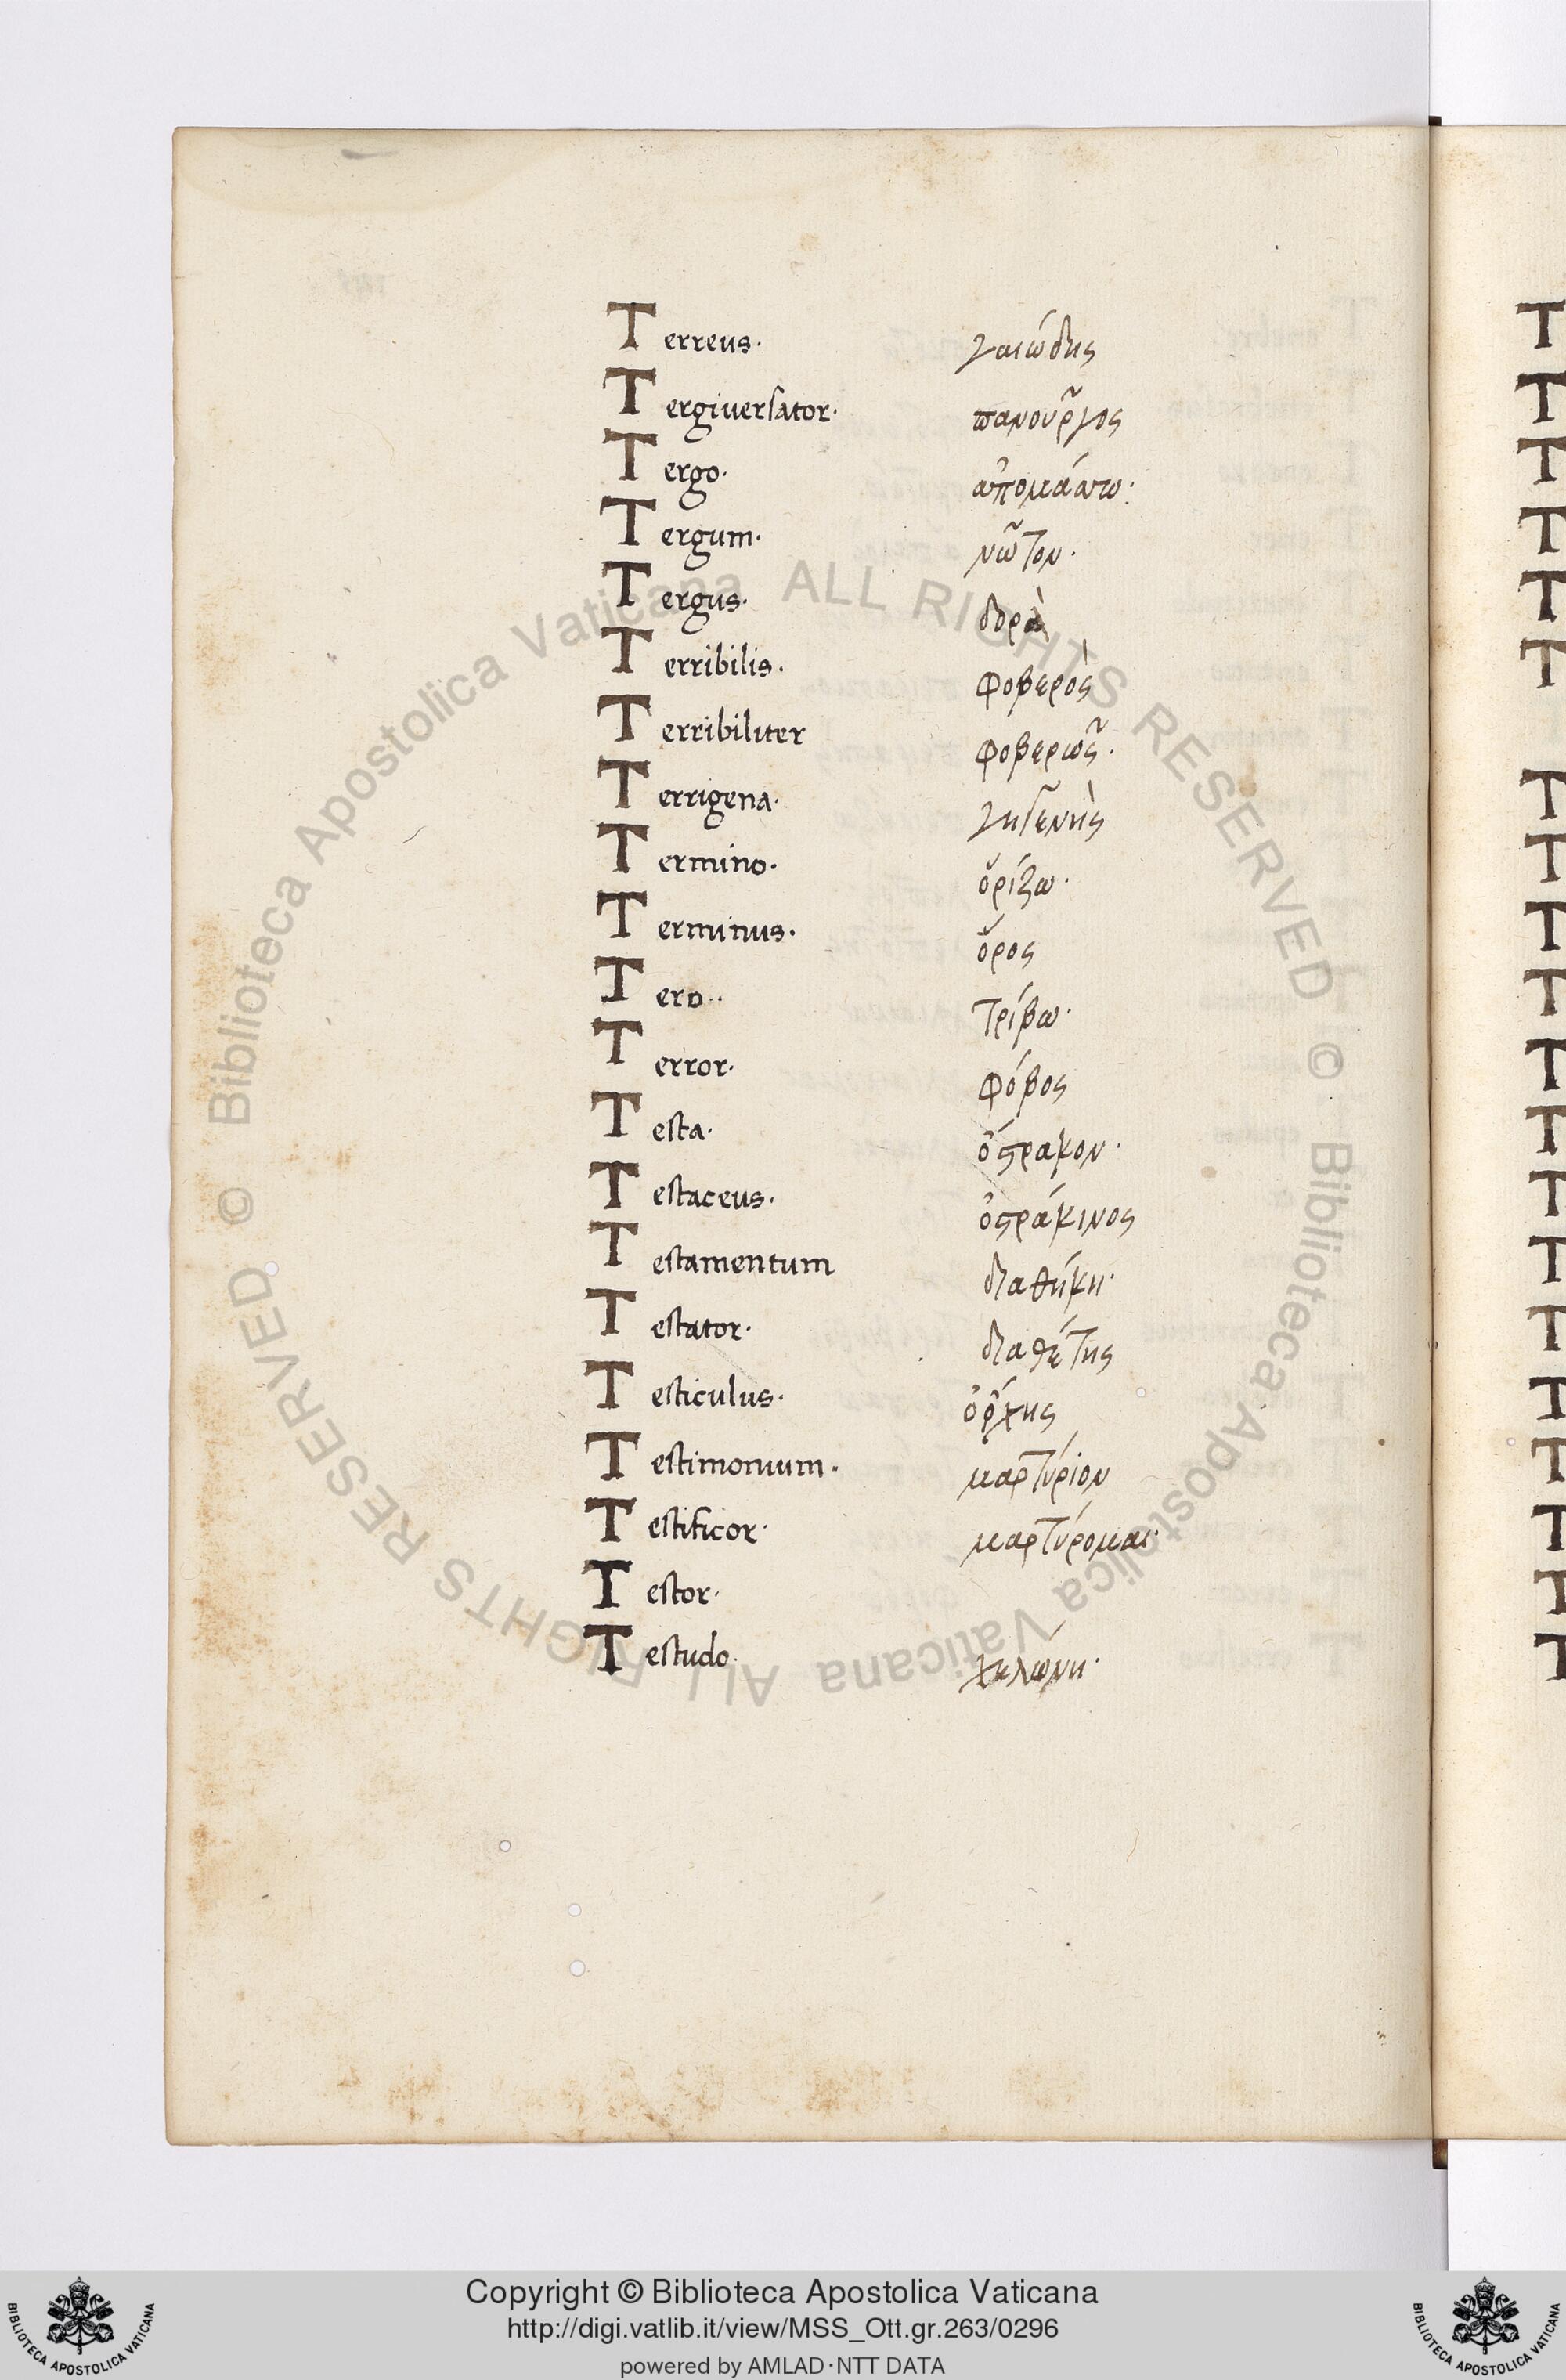 Terreus· γαιώδης
Tergiuersator· πανοῦργος
Tergo· ἀπομάττω:
Tergum· νῶτον·
Tergus· δορὰ
Terribilis· φοβερὸς
Terribiliter φοβερῶς·
Terrigena· γηγενὴς
Termino· ὁρίζω·
Terminus· ὅρος
Tero·· τρίβω·
Terror· φόβος
Testa· ὄστρακον·
Testaceus· ὀστράκινος
Testamentum διαθήκη·
Testator· διαθέτης
Testiculus· ὄρχης
Testimonium· μαρτύριον
Testificor· μαρτύρομαι·
Testor·
Testudo· χελώνη·
© Biblioteca Apostolica Vaticana ALL RIGHTS RESERVED © Biblioteca Apostolica Vaticana ALL RIGHTS RESERVED
Copyright © Biblioteca Apostolica Vaticana
http://digi.vatlib.it/view/MSS_Ott.gr.263/0296
powered by AMLAD·NTT DATA
BIBLIOTECA APOSTOLICA VATICANA
BIBLIOTECA APOSTOLICA VATICANA